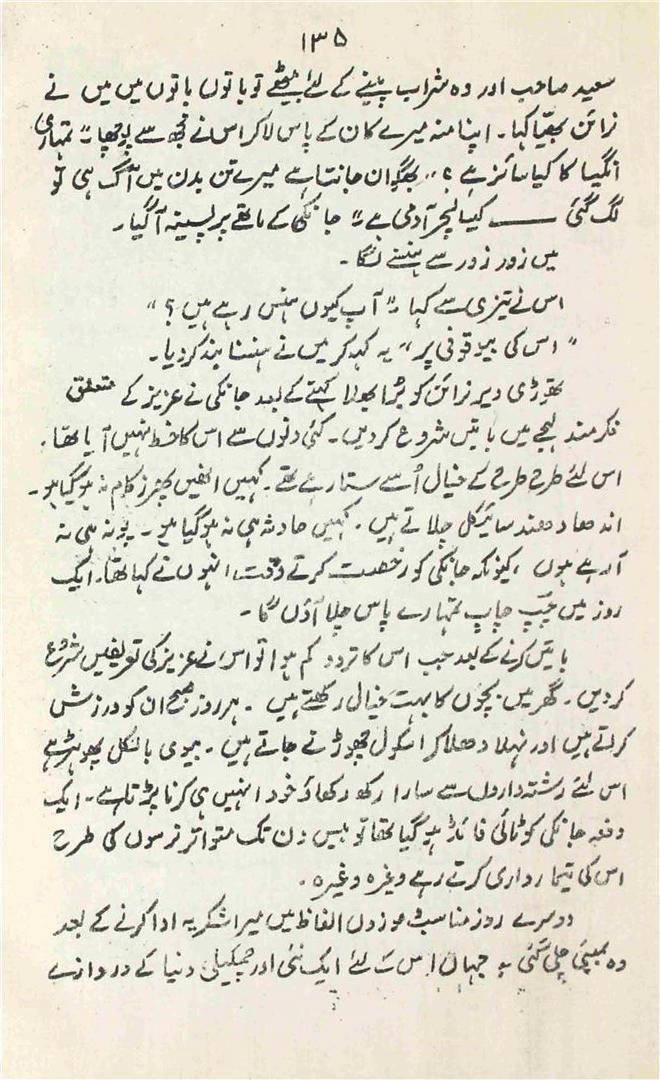 ۱۳۵
سعید صاحب اور وہ شراب پینے کے لئے بیٹھے تو باتوں باتوں میں میں نے
نرائن بھیّا کہا۔ اپنا منہ میرے کان کے پاس لا کر اس نے مجھ سے پوچھا۔" تمہاری
انگیا کا کیا سائز ہے؟" بھگوان جانتا ہے میرے تن بدن میں آگ ہی تو
لگ گئی —— کیسا لچر آدمی ہے" جانکی کے ماتھے پر پسینہ آ گیا۔
میں زور زور سے ہنسنے لگا۔
اس نے تیزی سے کہا۔" آپ کیوں ہنس رہے ہیں؟"
" اس کی بیوقوفی پر" یہ کہہ کر میں نے ہنسنا بند کر دیا۔
تھوڑی دیر نرائن کو بُرا بھلا کہنے کے بعد جانکی نے عزیز کے متعلق
فکرمند لہجے میں باتیں شروع کر دیں۔ کئی دنوں سے اس کا خط نہیں آیا تھا۔
اس لئے طرح طرح کے خیال اُسے ستا رہے تھے۔ کہیں انھیں پھر زکام نہ ہو گیا ہو۔
اندھا دھند سائیکل چلاتے ہیں۔ کہیں حادثہ ہی نہ ہو گیا ہو۔ پونہ ہی نہ
آ رہے ہوں، کیونکہ جانکی کو رخصت کرتے وقت انہوں نے کہا تھا۔ ایک
روز میں چپ چاپ تمہارے پاس چلا آؤں گا۔
باتیں کرنے کے بعد جب اس کا تردد کم ہوا تو اس نے عزیز کی تعریفیں شروع
کر دیں۔ گھر میں بچوں کا بہت خیال رکھتے ہیں۔ ہر روز صبح ان کو ورزش
کراتے ہیں اور نہلا دھلا کر اسکول چھوڑنے جاتے ہیں۔ بیوی بالکل پھوہڑ ہے
اس لئے رشتہ داروں سے سارا رکھ رکھاؤ خود انہیں ہی کرنا پڑتا ہے۔ ایک
دفعہ جانکی کو ٹائی فائڈ ہو گیا تھا تو بیس دن تک متواتر نرسوں کی طرح
اس کی تیمارداری کرتے رہے وغیرہ وغیرہ۔
دوسرے روز مناسب و موزوں الفاظ میں میرا شکریہ ادا کرنے کے بعد
وہ بمبئی چلی گئی۔ جہاں اس کے لئے ایک نئی اور چمکیلی دنیا کے دروازے